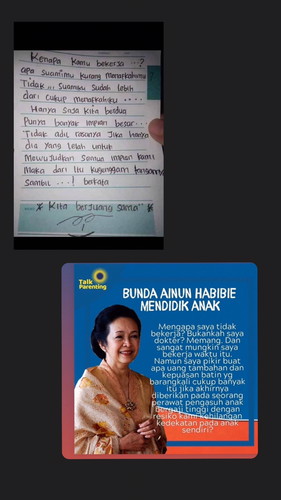 Kenapa Kamu bekerja ...?
apa suamimu kurang menafkahimu ?
Tidak ... suamiku sudah lebih
dari cukup menafkahiku ....
Hanya saja kita berdua
Punya banyak impian besar....
Tidak adil rasanya Jika hanya
dia yang lelah untuk
Mewujudkan semua impian kami
Maka dari itu kugenggam tangannya
sambil ...! berkata
* Kita berjuang sama" *
Talk
Parenting
BUNDA AINUN HABIBIE
MENDIDIK ANAK
Mengapa saya tidak
bekerja? Bukankah saya
dokter? Memang. Dan
sangat mungkin saya
bekerja waktu itu.
Namun saya pikir buat
apa uang tambahan dan
kepuasan batin yg
barangkali cukup banyak
itu jika akhirnya
diberikan pada seorang
perawat pengasuh anak
bergaji tinggi dengan
resiko kami kehilangan
kedekatan pada anak
sendiri?